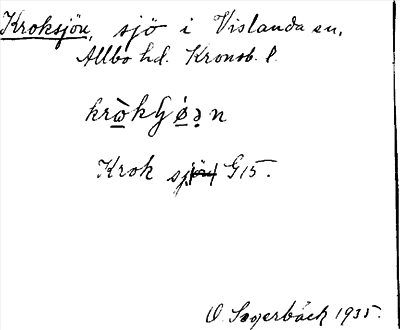 Kroksjön, sjö i Vislanda sn,
Allbo hd. Kronob. l.
krò̲kɧǿ̲ən
Krok sj G15.
O. Sagerbäck 1935.